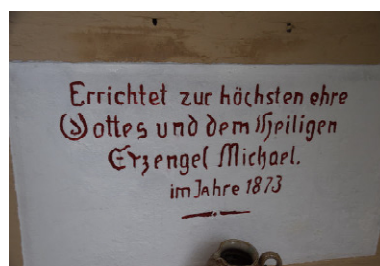 Errichtet zur höchsten ehre
Gottes und dem Heiligen
Erzengel Michael.
im Jahre 1873